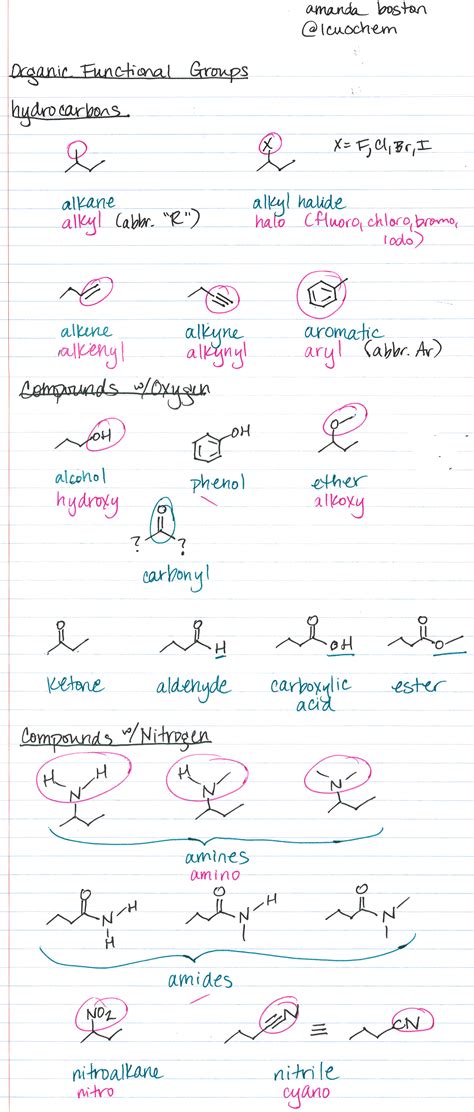 amanda boston
@lcuochem
Organic Functional Groups
hydrocarbons
X X= F, Cl, Br, I
alkane alkyl halide
alkyl (abbr. "R") halo (fluoro, chloro, bromo,
iodo)
alkene alkyne aromatic
alkenyl alkynyl aryl (abbr. Ar)
Compounds w/Oxygen
OH OH O
alcohol phenol ether
hydroxy alkoxy
O
? ?
carbonyl
O O O O
H OH O
ketone aldehyde carboxylic ester
acid
Compounds w/Nitrogen
H H H
N N N
amines
amino
O O O
N H N H N
H
amides
NO2 N ≡ CN
nitroalkane nitrile
nitro cyano